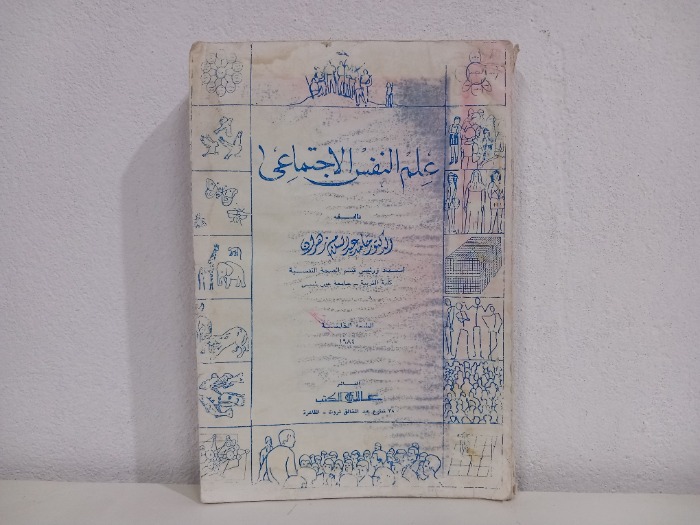 علم النفس الاجتماعى
تأليف
الدكتور حامد عبد السلام زهران
أستاذ ورئيس قسم الصحة النفسية
كلية التربية – جامعة عين شمس
الطبعة الخامسة
١٩٨٤
الناشر
عالم الكتب
٣٨ شارع عبد الخالق ثروت – القاهرة